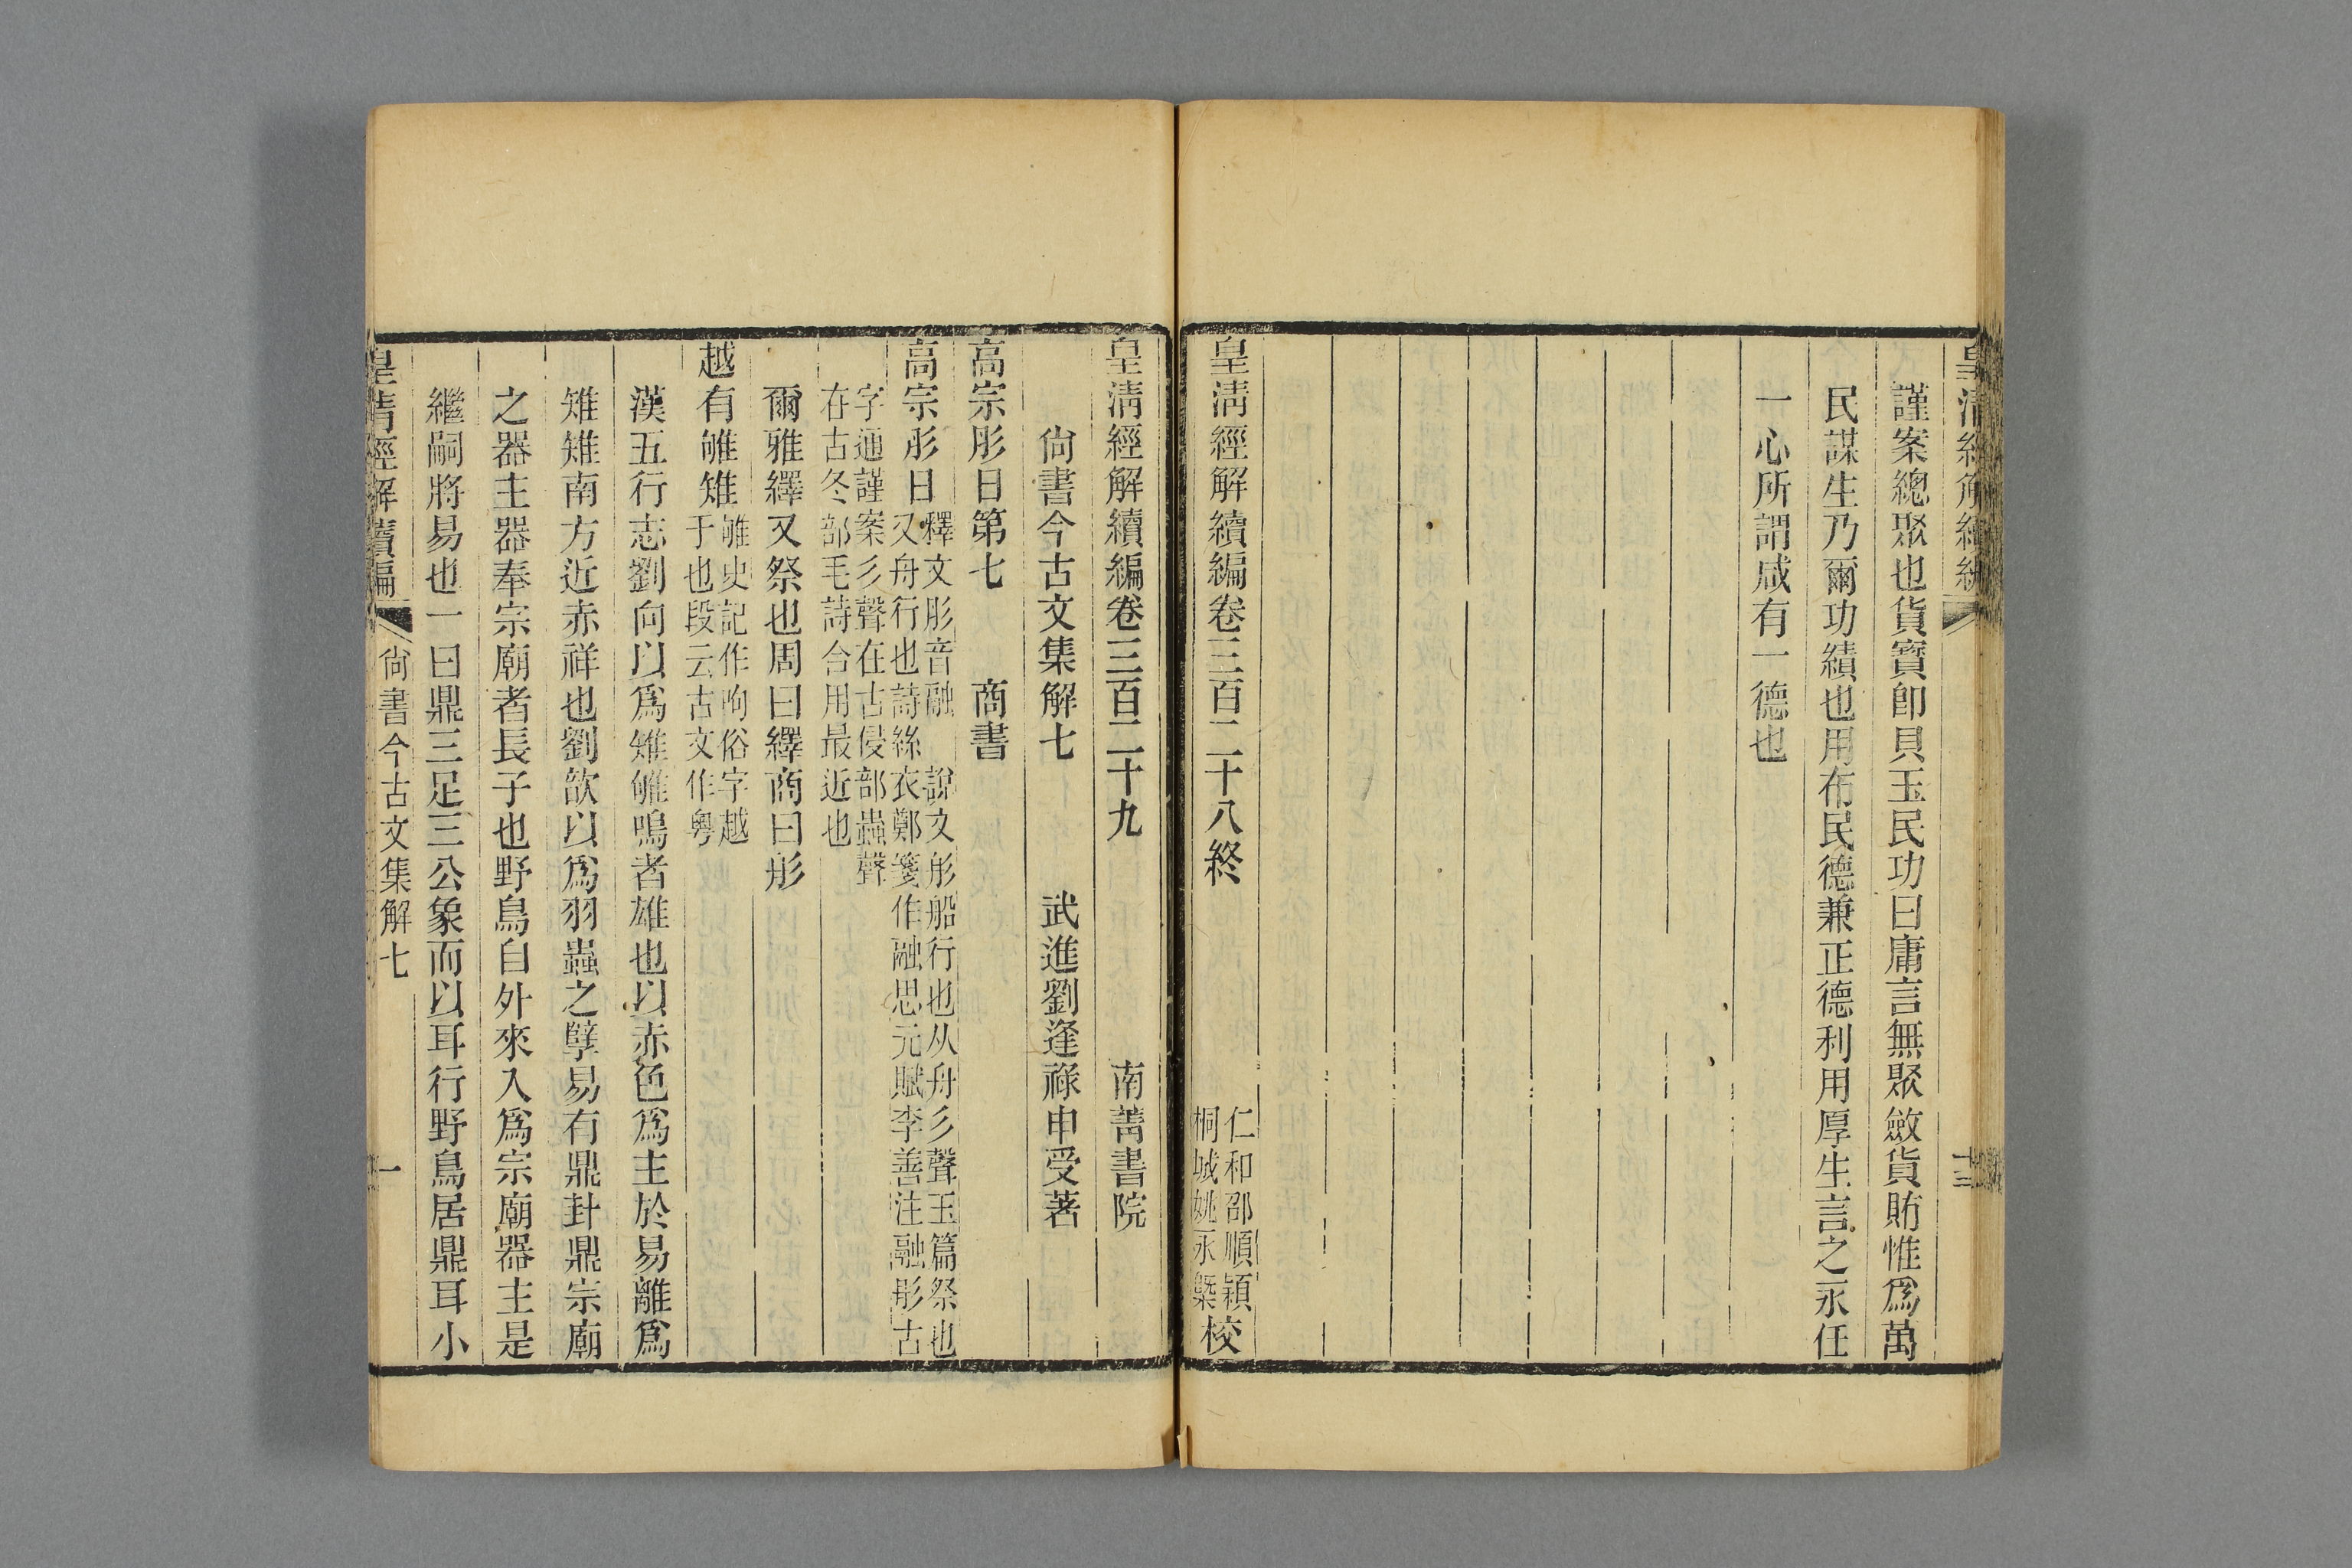 皇清經解續編
十三
謹案總聚也貨寶卽貝玉民功曰庸言無聚斂貨賄惟爲萬
民謀生乃爾功績也用布民德兼正德利用厚生言之永任
一心所謂咸有一德也
皇清經解續編卷三百二十八終
仁和邵順穎
桐城姚永㮣
校
皇清經解續編卷三百二十九
南菁書院
尙書今古文集解七
武進劉逢祿申受著
高宗肜日第七
商書
高宗肜日
釋文肜音融
說文肜船行也从舟彡聲玉篇祭也
又舟行也詩絲衣鄭箋作融思元賦李善注融肜古
字通謹案彡聲在古侵部蟲聲
在古冬部毛詩合用最近也
爾雅繹又祭也周曰繹商曰肜
越有雊雉
雊史記作呴俗字越
于也段云古文作粤
漢五行志劉向以爲雉雊鳴者雄也以赤色爲主於易離爲
雉雉南方近赤祥也劉歆以爲羽蟲之孽易有鼎卦鼎宗廟
之器主器奉宗廟者長子也野鳥自外來入爲宗廟器主是
繼嗣將易也一曰鼎三足三公象而以耳行野鳥居鼎耳小
皇清經解續編
尙書今古文集解七
一